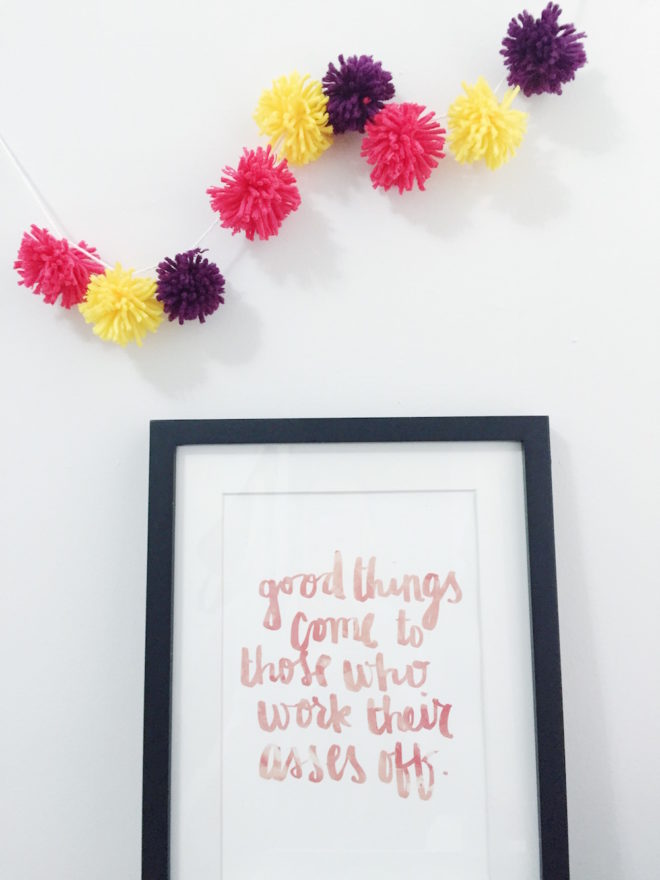 good things
come to
those who
work their
asses off.